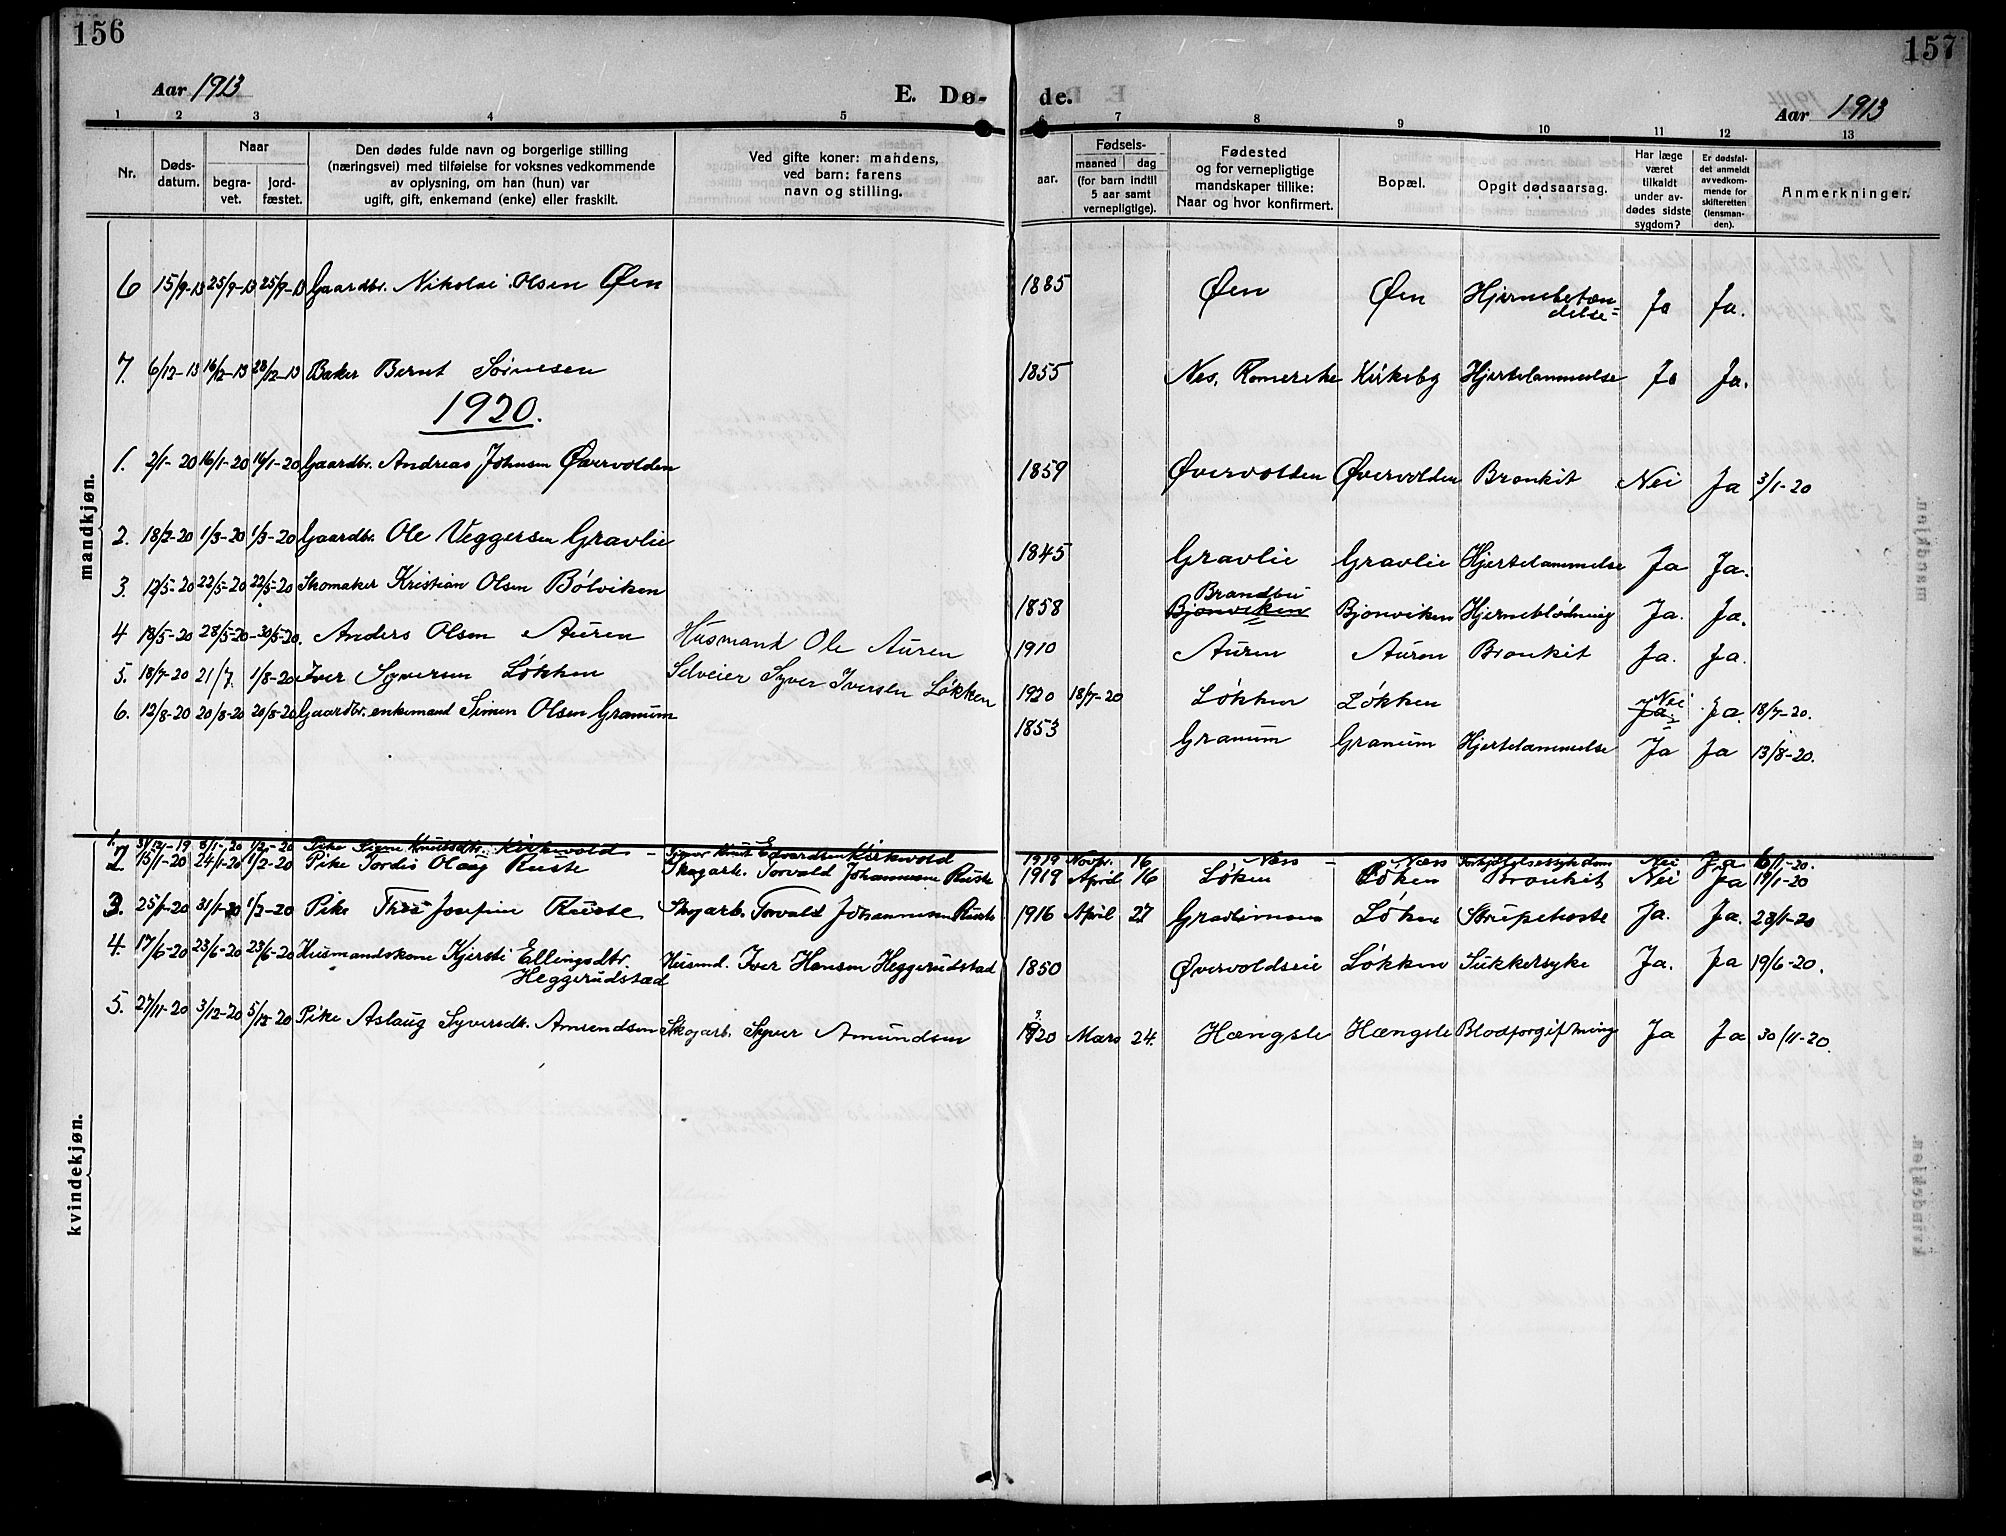 156
157
Aar 1913
E. Dø-
de.
Aar 1913
1 2 3 4 5 6 7 8 9 10 11 12 13
Nr.
Døds-
datum.
Naar
begra-
vet.
jord-
fæstet.
Den dødes fulde navn og borgerlige stilling
(næringsvei) med tilføielse for voksnes vedkommende
av oplysning, om han (hun) var
ugift, gift, enkemand (enke) eller fraskilt.
Ved gifte koner: mandens,
ved barn: farens
navn og stilling.
Fødsels-
aar.
maaned
dag
(for barn indtil
5 aar samt
vernepligtige).
Fødested
og for vernepligtige
mandskaper tillike:
Naar og hvor konfirmert.
Bopæl.
Opgit dødsaarsag.
Har læge
været
tilkaldt
under av-
dødes sidste
sygdom?
Er dødsfal-
det anmeldt
av vedkom-
mende for
skifteretten
(lensman-
den).
Anmerkninger.
mandkjøn.
6 15/9-13 25/9-13 25/9-13 Gaardbr. Nikolai Olsen Øen 1885 Øen Øen Hjernebetæn-
delse Ja Ja.
7. 6/12-13 16/12-13 28/12-13 Baker Bernt Sørnesen 1855 Nes, Romerike Kirkeby Hjertelammelse Ja Ja.
1920.
1. 2/1-20 16/1-20 16/1-20 Gaardbr. Andreas Johnsen Øvervolden 1859 Øvervolden Øvervolden Bronkit Nei Ja 3/1-20
2. 18/2-20 1/3-20 1/3-20 Gaardbr. Ole Veggersen Gravlie 1845 Gravlie Gravlie Hjertelammelse Ja Ja.
3. 12/5-20 22/5-20 22/5-20 Skomaker Kristian Olsen Bølviken 1858 Brandbu
Bjonviken Bjonviken Hjerneblødning Ja. Ja.
4 18/5-20 28/5-20 30/5-20. Anders Olsen Auren Husmand Ole Auren 1910 Auren Auren Bronkit Ja. Ja.
5. 18/7-20 21/7. 1/8-20 Iver Syversen Løkken Selveier Syver Iversen Løkken 1920 18/7-20 Løkken Løkken Nei
Ja Ja. 18/7-20.
6. 12/8-20 20/8-20 20/8-20 Gaardbr. enkemand Simen Olsen Granum 1853 Granum Granum Hjertelammelse Ja Ja 13/8-20.
kvindekjøn.
1. 31/12-19 8/1-20 1/2-20 Pike Signe Knutsdtr. Kirkevold Knut Edvardsen Kirkevold 1919 Novbr. 16 Næss Næss Nei Ja 6/1-20.
2 15/1-20 24/1-20 1/2-20 Pike Tordis Olaug Ruste Skogarb. Torvald Johannesen Ruste 1919 April 16 Løken Løken Bronkit Nei Ja 17/1-20
3. 25/1-20 31/1-20 1/2-20 Pike Thea Josefine Ruste Skogarb. Torvald Johannesen Ruste 1916 April 27 Løken Strupehoste Ja. Ja. 28/1-20
4. 17/6-20 23/6-20 23/6-20 Husmandskone Kjersti Ellingsdtr.
Heggerudstad Husmd. Iver Hansen Heggerudstad 1850 Øvervoldseie Løkken Sukkersyke Ja. Ja 19/6-20.
5. 27/11-20 3/12-20 5/12-20 Pike Aslaug Syversdtr. Amundsen Skogarb. Syver Amundsen 1920 Mars 24. Hængsle Hængsle Blodforgiftning Ja Ja 30/11-20.